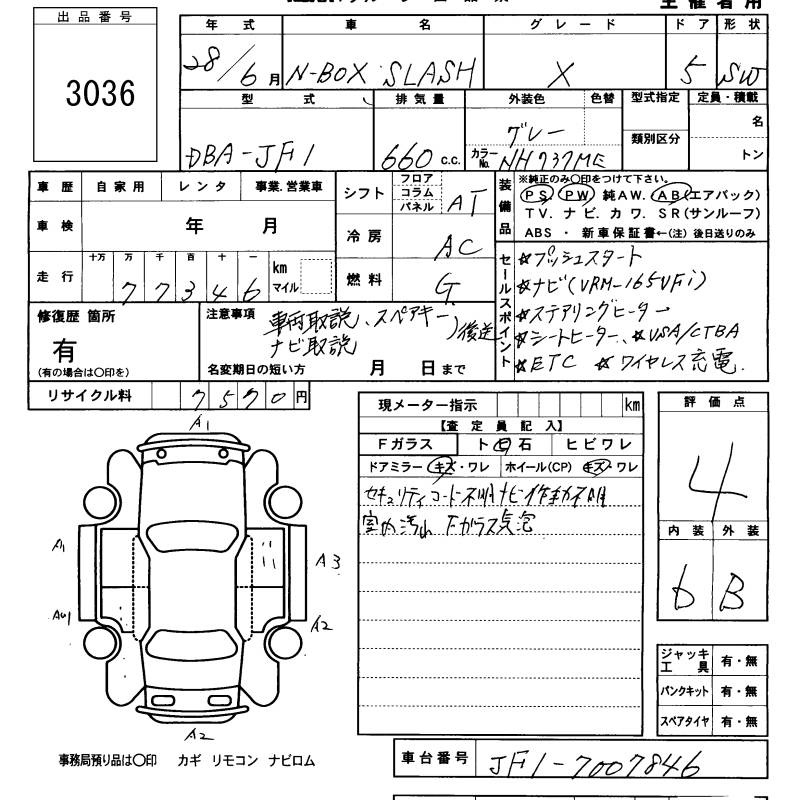 主催者用
出品番号
3036
年式 車名 グレード ドア 形状
28/6月 N-BOX SLASH X 5 SW
型式 排気量 外装色 色替 型式指定 定員・積載
DBA-JF1 660 c.c. グレー 類別区分 名
カラーNo. NH737ME トン
車歴 自家用 レンタ 事業.営業車
車検 年 月
走行 十万 万 千 百 十 一 km マイル
77346
シフト フロア コラム パネル AT
冷房 AC
燃料 G
装備品 ※純正のみ○印をつけて下さい。
PS. PW 純AW. AB(エアバック)
TV. ナビ. カワ. SR(サンルーフ)
ABS ・ 新車保証書←(注) 後日送りのみ
セールスポイント
☆プッシュスタート
☆ナビ(VRM-165VFi)
☆ステアリングヒーター
☆シートヒーター、☆VSA/CTBA
☆ETC ☆ワイヤレス充電.
修復歴 箇所
有
(有の場合は○印を)
注意事項 車両取説、スペアキー
ナビ取説 )後送
名変期日の短い方 月 日まで
リサイクル料 7570円
現メーター指示 km
【査定員記入】
Fガラス ト日石 ヒビワレ
ドアミラー キズ・ワレ ホイール(CP) キズ・ワレ
セキュリティコード不明ナビ作動不明
室内汚れ Fガラス気泡
評価点
4
内装 外装
D B
A1
A1
A3
AW1
A2
A2
ジャッキ工具 有・無
パンクキット 有・無
スペアタイヤ 有・無
事務局預り品は○印 カギ リモコン ナビロム
車台番号 JF1-7007846